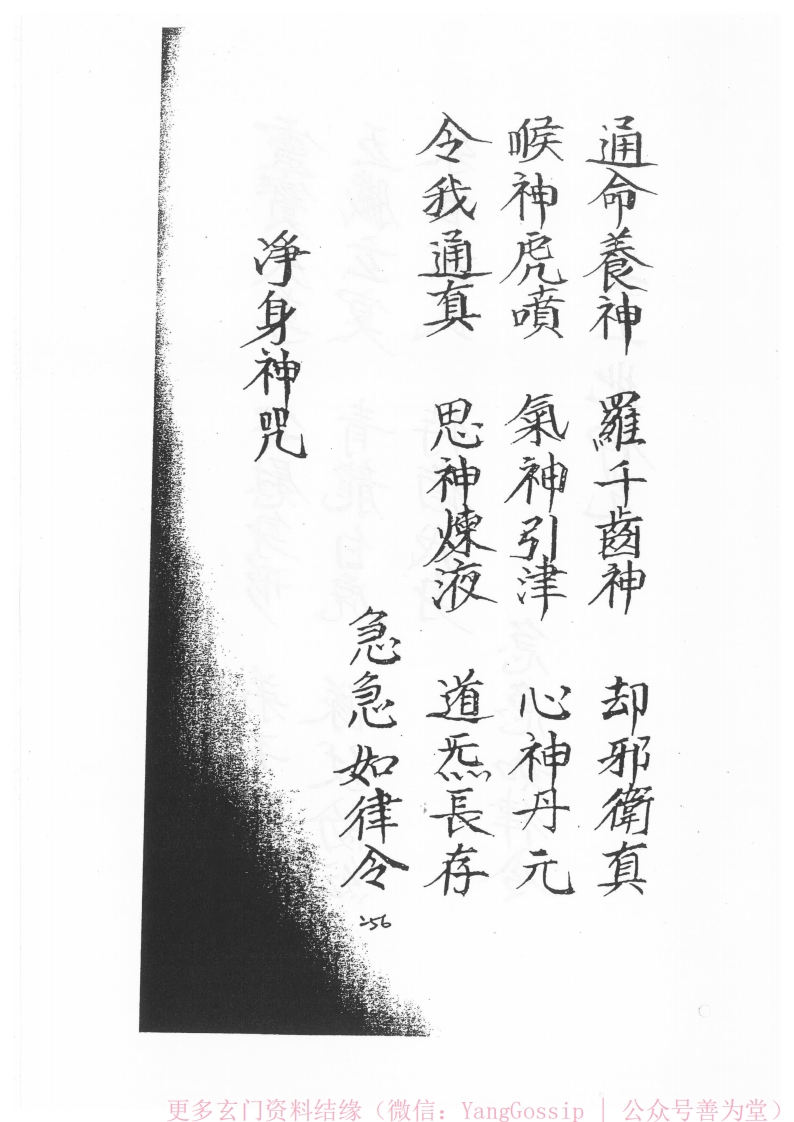 通命養神　羅千齒神　却邪衛真
喉神虎噴　氣神引津　心神丹元
令我通真　思神煉液　道炁長存
急急如律令
淨身神咒
256
更多玄门资料结缘（微信：YangGossip | 公众号善为堂）